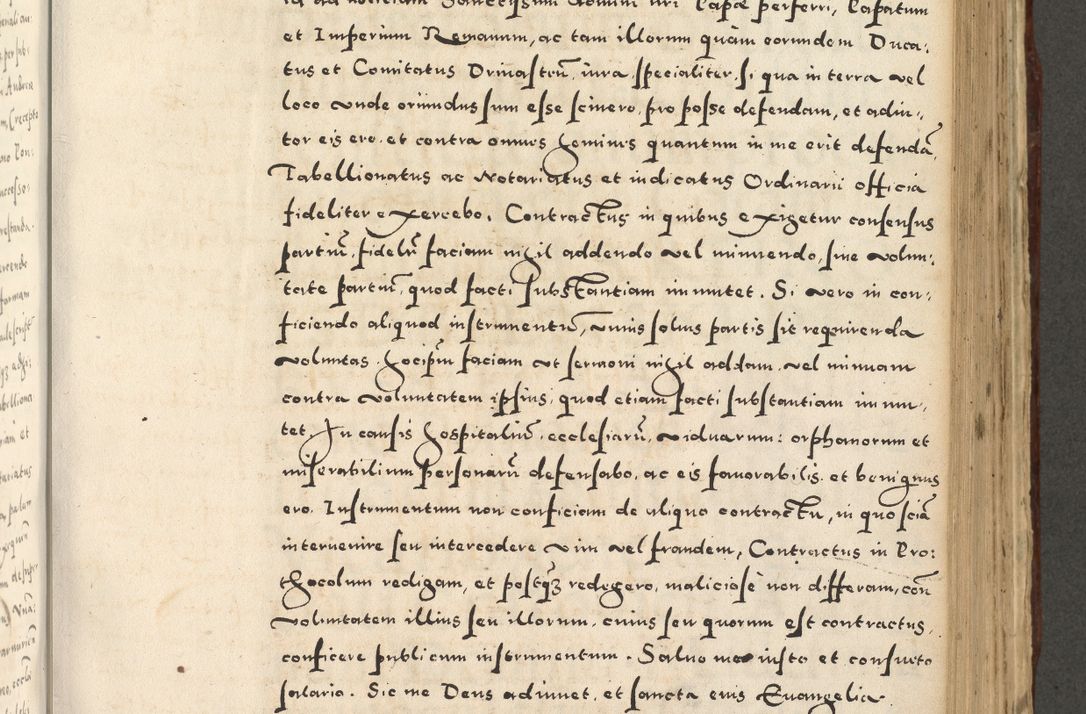 id ad notitiam Sanctissimi domini nri Papæ perferri, Papatum
et Imperium Romanum, ac tam illorum quàm eorundem Duca-
tus et Comitatus Drinastrũ, iura specialiter, si qua in terra vel
loco vnde oriundus sum esse scivero, pro posse defendam, et adiu-
tor eis ero. et contra omnes homines quantum in me erit defendã,
Tabellionatus ac Notariatus et iudicatus Ordinarii officia
fideliter exercebo. Contractus in quibus exigetur consensus
partiũ, fidelr̃ faciam nihil addendo vel minuendo, sine volun-
tate partiũ, quod facti substantiam inmutet. Si vero in con-
ficiendo aliquod instrumentũ, vnius solius partis sit requirenda
voluntas, hocipm̃ faciam vt sermoni nihil addam, vel minuam
contra voluntatem ipsius, quod etiam facti substantiam inmu-
tet. In causis hospitaliũ, ecclesiarũ, viduarum: orphanorum et
miserabilium personarũ defensabo, ac eis favorabilis et benignus
ero. Instrumentum non conficiam de aliquo contractu, in quo sciã
intervenire seu intercedere vim vel fraudem, Contractus in Pro:
thocolum redigam, et postq̃ȝ redegero, maliciosè non differam, con̄
voluntatem illius seu illorum, cuius seu quorum est contractus,
conficere publicum instrumentum. Salvo meo iusto et consueto
salario. Sic me Deus adiuvet, et sancta eius Evangelia.